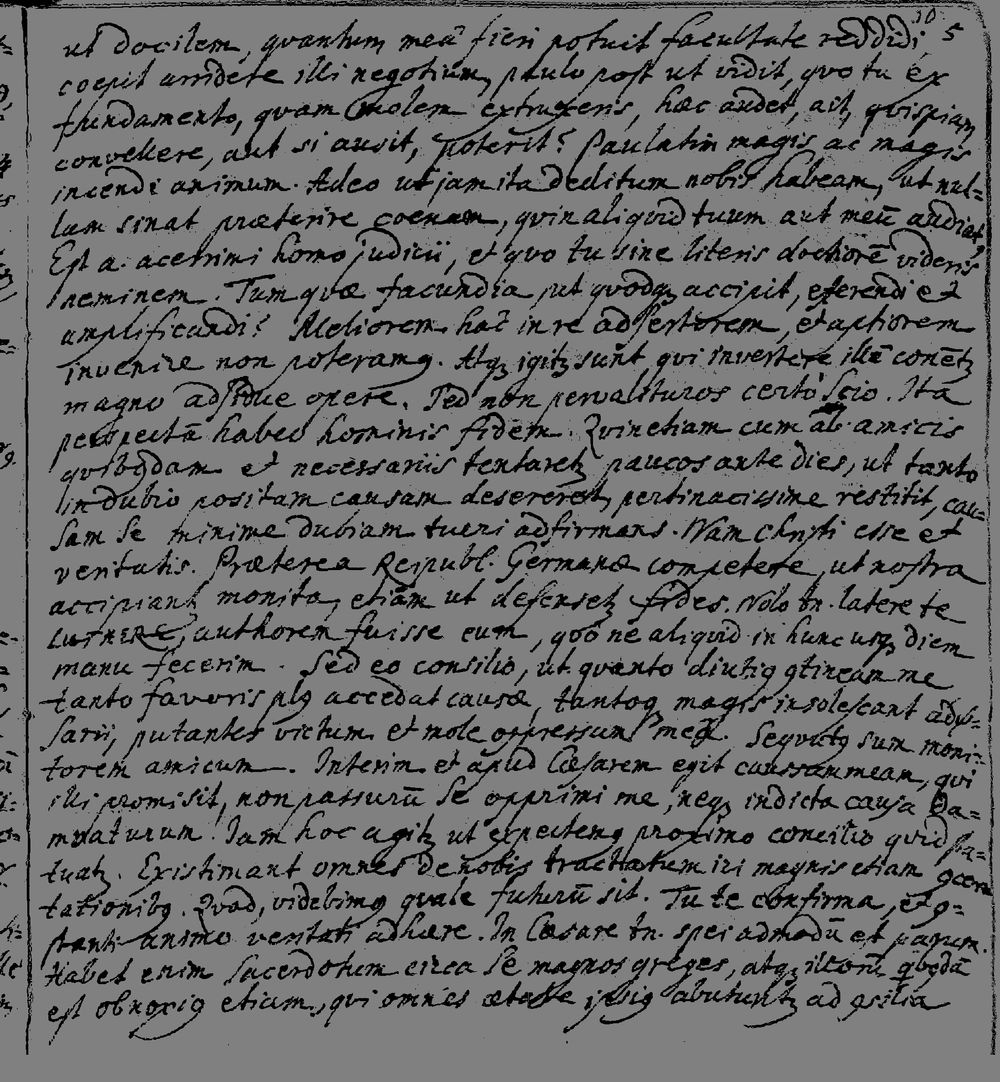 10
ut docilem, quantum meâ fieri potuit facultate reddidi, 5
coepit arridere illi negotium, paulo post ut vidit, quo tu ex
fundamento, quam molem extruxeris, haec audet, ait, quispiam
convellere, aut si ausit, poterit? Paulatim magis ac magis
incendi animum. Adeo ut jam ita deditum nobis habeam, ut nul=
lum sinat praeterire coenam, quin aliquid tuum aut meū audiat,
Est a. acerrimi homo judicii, et quo tu sine literis doctiorē videris
neminem. Tum quae facundia, ut quodq3 accipit, eferendi et
amplificandi? Meliorem hac in re adsertorem, et aptiorem
invenire non poteramq. Atq3 igit3 sunt, qui invertere illū conēt3
magno adsidue opere. Sed non pervalituros certò scio. Ita
perspectā habeo hominis fidem. Quinetiam cum ab amicis
quibqdam et necessariis tentaret3 paucos ante dies, ut tanto
in dubio positam causam desereret, pertinacissime restitit, cau=
sam se minime dubiam tueri adfirmans. Nam christi esse et
veritatis. Praeterea Reipubl. Germanae competere, ut nostra
accipiant3 monita, etiam ut defenset3 fides. Nolo tn. latere te
LUTHERE, authorem fuisse eum, quo ne aliquid in hunc usq3 diem
manu fecerim. Sed eo consilio, ut quanto diutiq 9tineam me
tanto favoris plq accedat causae, tantoq magis insolescant adver=
sarii, putantes victum et mole oppressum meā. Sequutq sum moni=
torem amicum. Interim et apud Caesarem egit caussam meam, qui
illi promisit, non passurū se opprimi me, neq3 indicta causa da=
mnaturum. Iam hoc agit3 ut expectemq proximo concilio quid sta=
tuat3. Existimant omnes de nobis tractatum iri magnis etiam 9cer=
tationibq. Quod, videbimq quale futurū sit. Tu te confirma, et 9=
stanti animo veritati adhaere. In Caesare tn. spei admodū est parum.
Habet enim sacerdotum circa se magnos greges, atq3 illorū quibqdā
est obnoxiq etiam, qui omnes aetate ipsiq abutunt3 ad 9silia